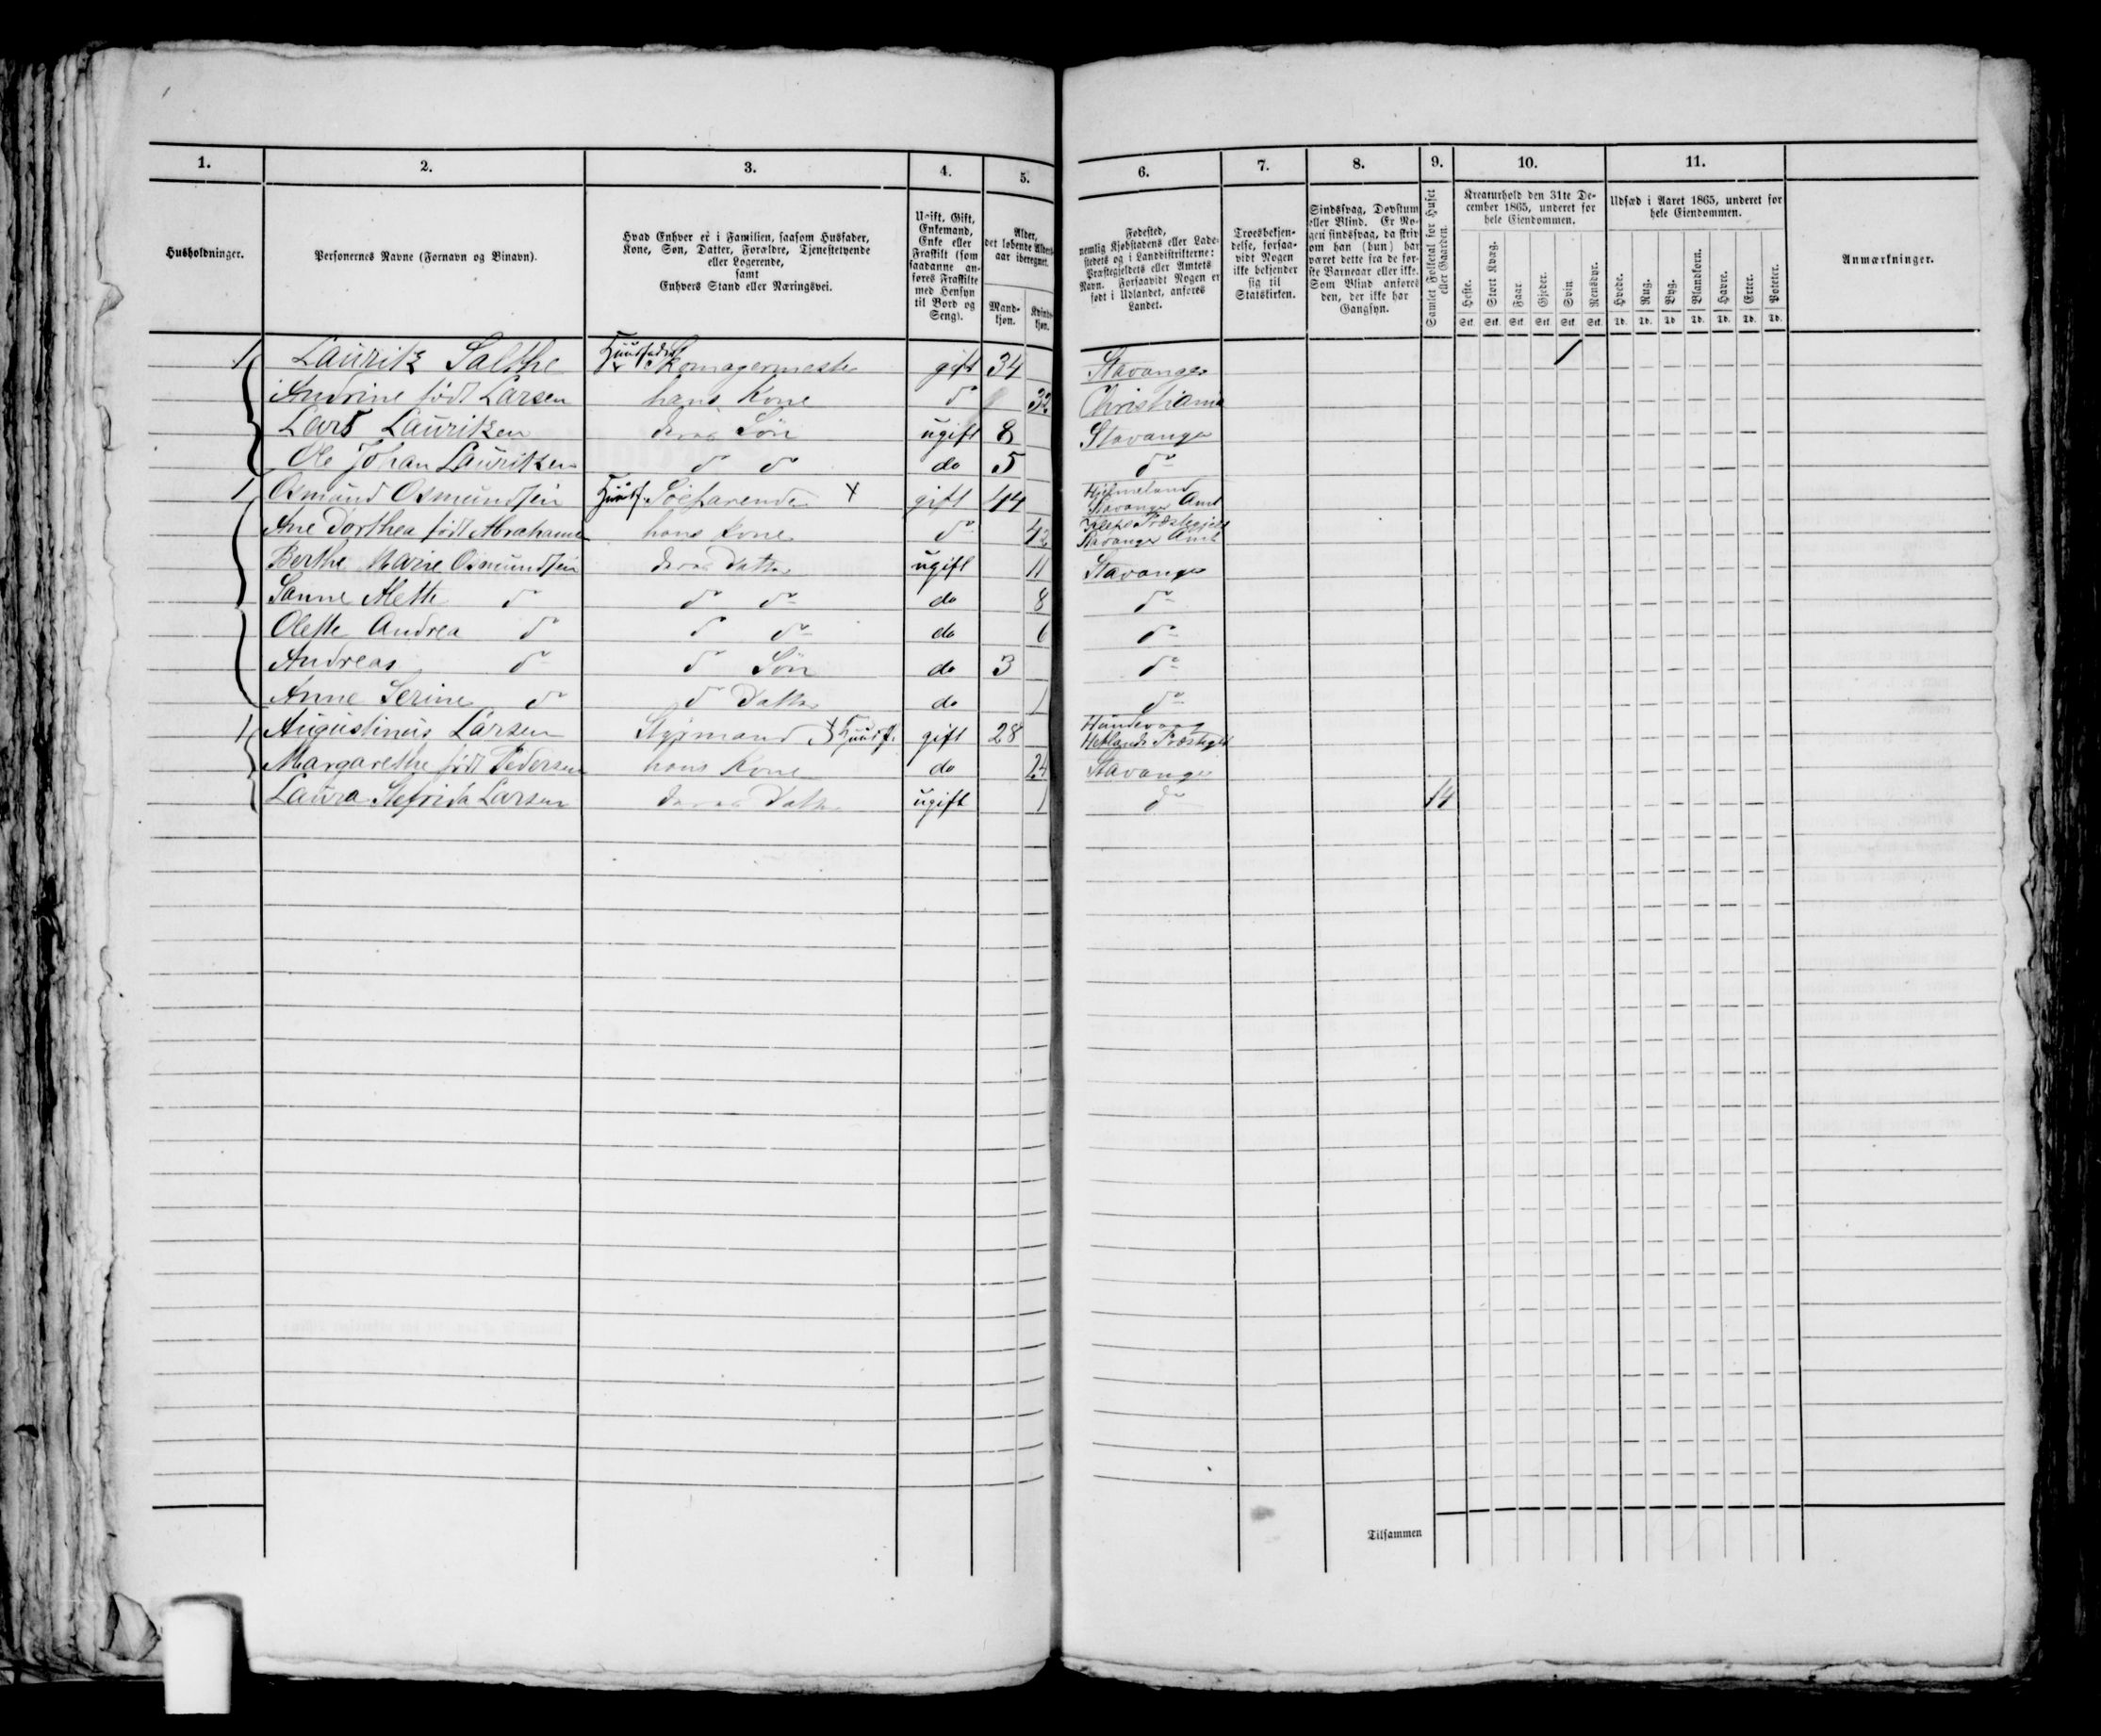 1. 2. 3. 4. 5. 6. 7. 8. 9. 10. 11.
Husholdninger.
Personernes Navne (Fornavn og Binavn).
Hvad Enhver er i Familien, saasom Husfader,
Kone, Søn, Datter, Forældre, Tjenestetyende
eller Logerende,
samt
Enhvers Stand eller Næringsvei.
Ugift, Gift,
Enkemand,
Enke eller
Fraskilt (som
saadanne an-
føres Fraskilte
med Hensyn
til Bord og
Seng).
Alder,
det løbende Alders-
aar iberegnet.
Mand-
kjøn.
Kvinde-
kjøn.
Fødested,
nemlig Kjøbstadens eller Lade-
stedets og i Landdistrikterne:
Præstegjeldets eller Amtets
Navn. Forsaavidt Nogen er
født i Udlandet, anføres
Landet.
Troesbekjen-
delse, forsaa-
vidt Nogen
ikke bekjender
sig til
Statskirken.
Sindssvag, Døvstum
eller Blind. Er No-
gen sindssvag, da skriv
om han (hun) har
været dette fra de før-
ste Barneaar eller ikke.
Som Blind anføres
den, der ikke har
Gangsyn.
Samlet Folketal for Huset
eller Gaarden.
Kreaturhold den 31te De-
cember 1865, underet for
hele Eiendommen.
Heste. Stort Kvæg. Faar. Gjeder. Svin. Rensdyr.
Stk. Stk. Stk. Stk. Stk. Stk.
Udsæd i Aaret 1865, underet for
hele Eiendommen.
Hvede. Rug. Byg. Blandkorn. Havre. Erter. Poteter.
Td. Td. Td. Td. Td. Td. Td.
Anmærkninger.
1 Lauritz Salthe Huusfader Skomagermester gift 34 Stavanger 1
Andrine født Larsen hans Kone do 32 Christiania
Lars Lauritzen deres Søn ugift 8 Stavanger
Ole Johan Lauritzen do do do 5 do
1 Osmund Osmundsen Huusf. Søefarende x gift 44 Hjelmeland
Stavanger Amt
Ane Dorthea født Abrahamsen hans Kone do 42 Præstegjeld
Stavanger Amt
Berthe Marie Osmundsen deres Datter ugift 11 Stavanger
Sanne Mette do do do do 8 do
Olette Andrea do do do do 6 do
Andreas do do Søn do 3 do
Anne Serine do do Datter do 1 do
1 Augustinus Larsen Styrmand x Huusf. gift 28 Hundevaag
Hetlands Præstegjeld
Margarethe født Pedersen hans Kone do 24 Stavanger
Laura Larsen deres Datter ugift 1 do 14
Tilsammen